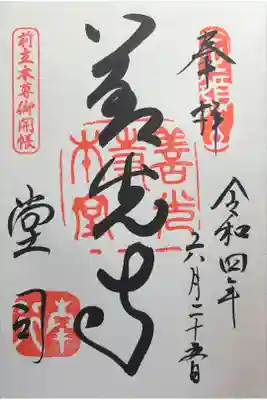 奉拝
令和四年
六月二十五日
善光寺
堂司
前立本尊御開帳
善光
本堂